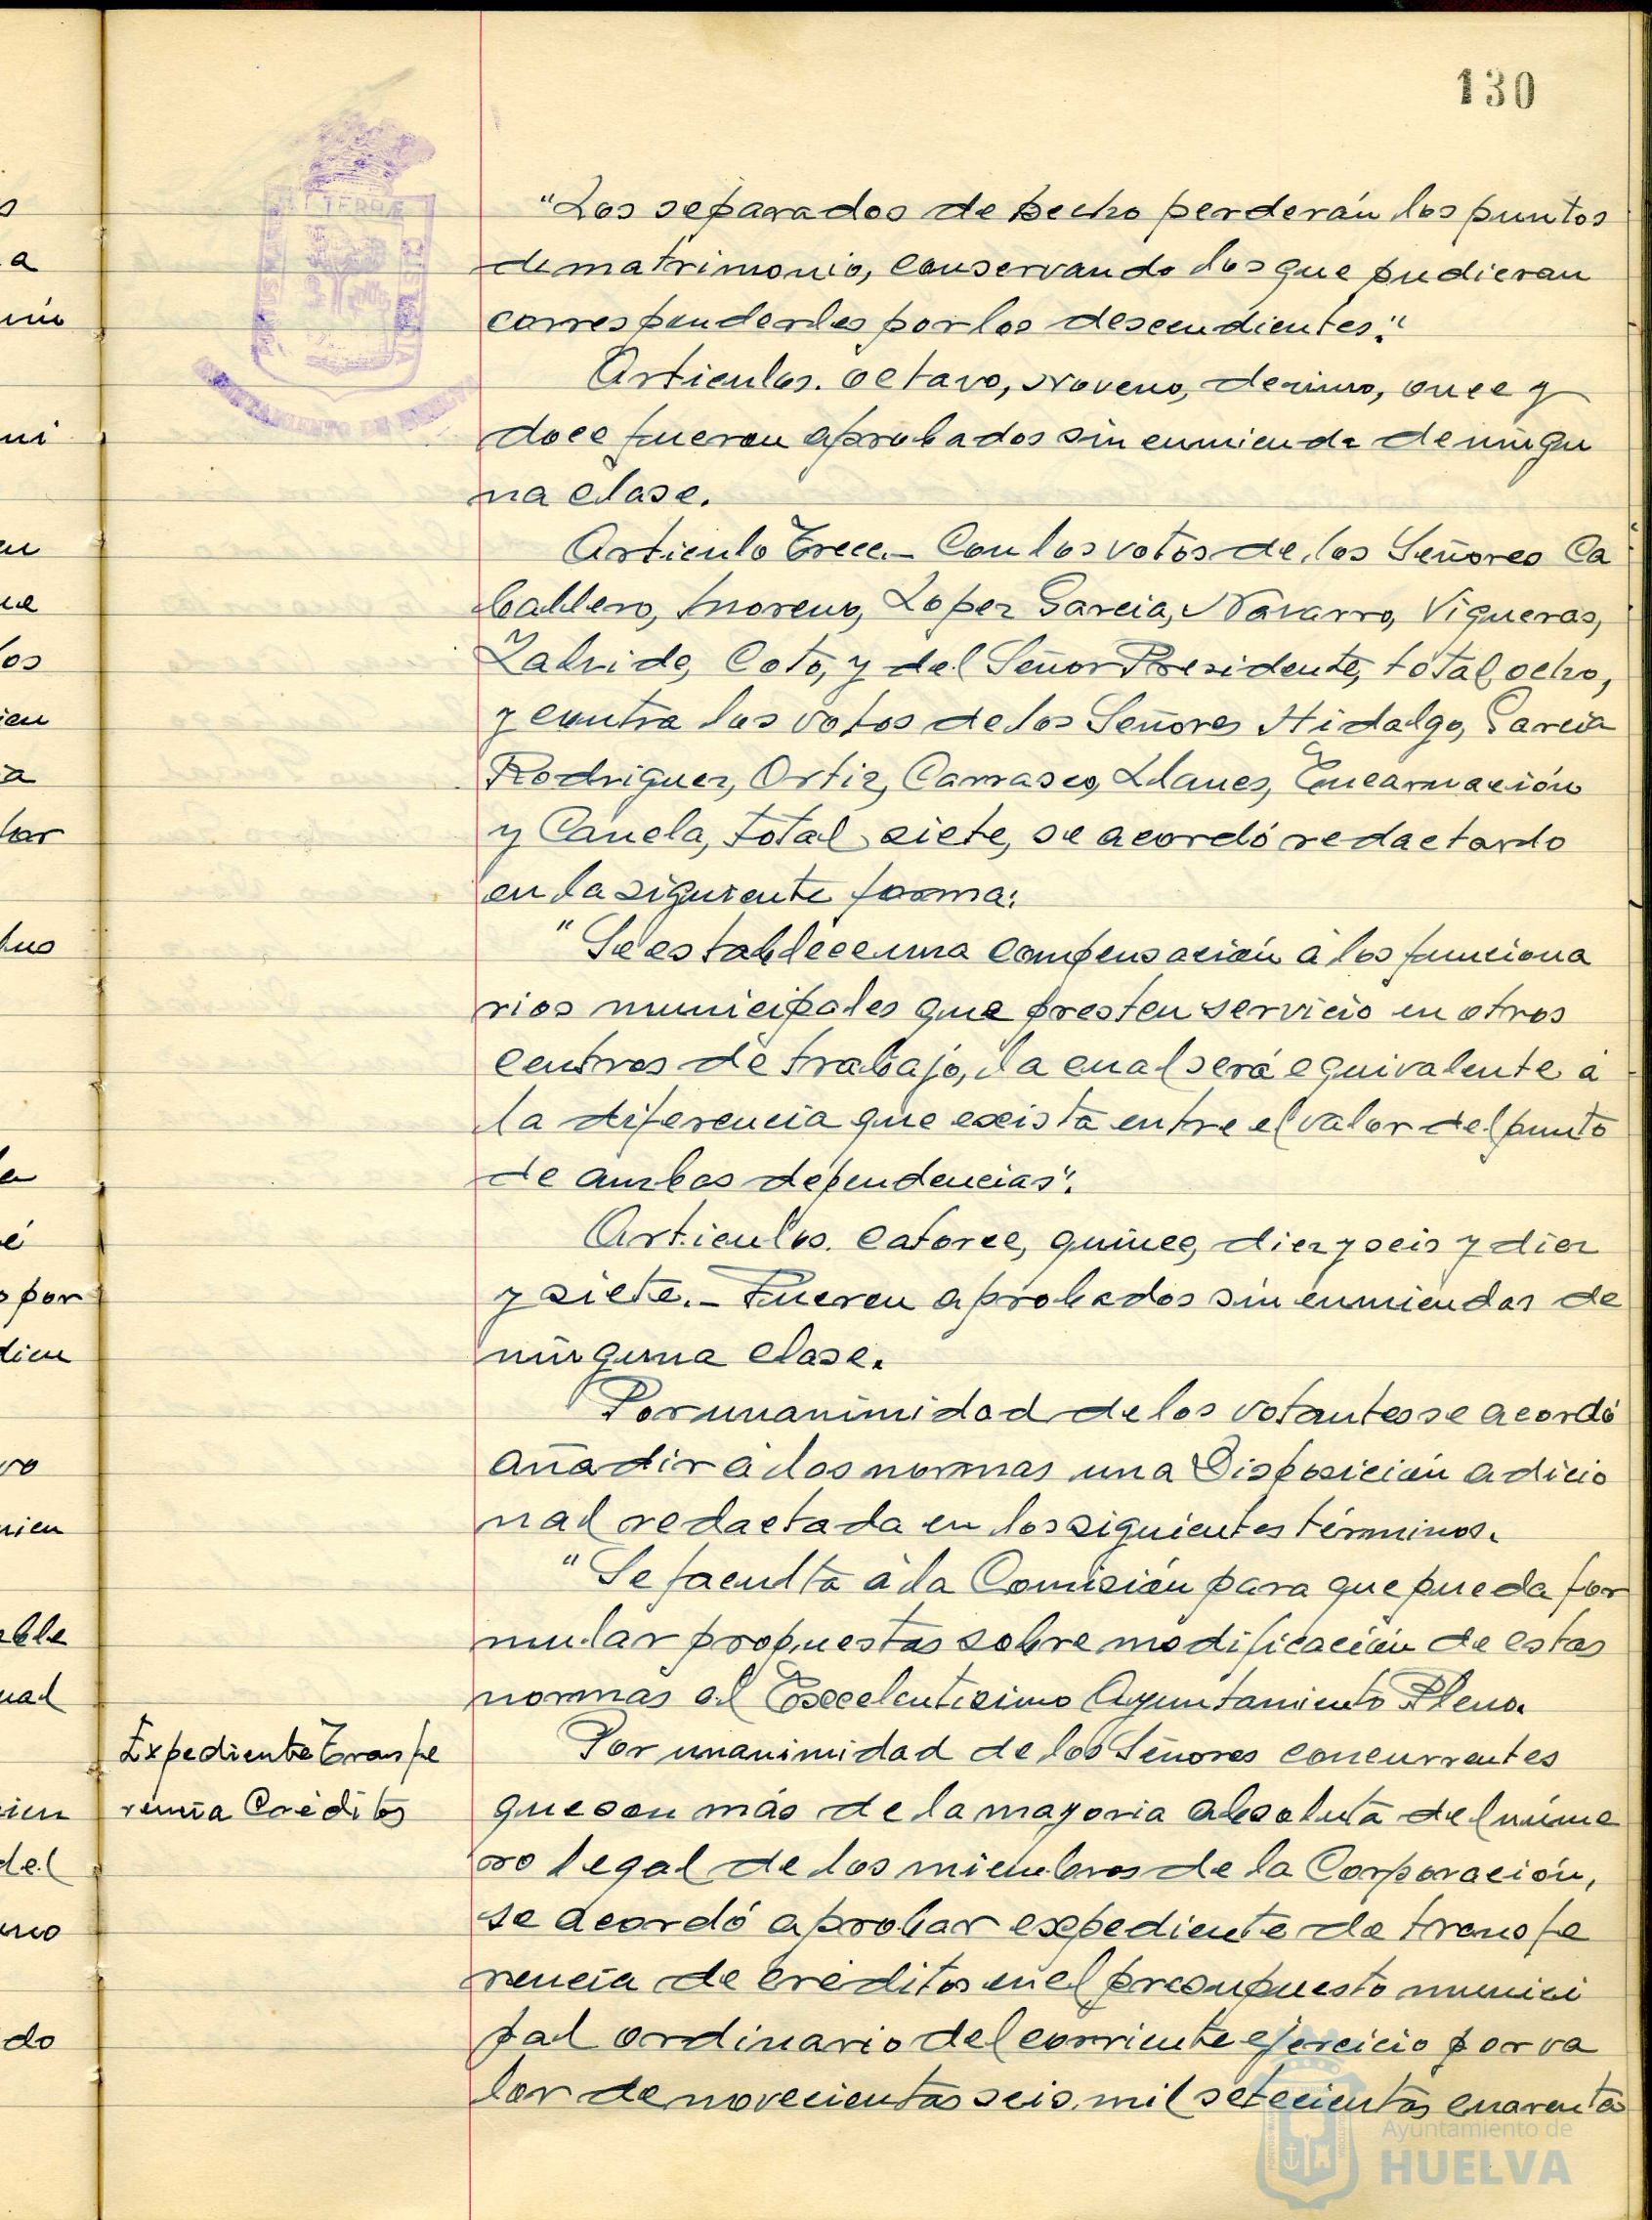 130
"Los separados de hecho perderán los puntos
de matrimonio, conservando los que pudieran
corresponderles por los descendientes."
Articulos. octavo, Noveno, decimo, once y
doce fueron aprobados sin enmienda de ningu
na clase.
Articulo Trece.- Con los votos de los Señores Ca
ballero, Moreno, Lopez Garcia, Navarro, Vigueras,
Zalvide, Coto, y del Señor Presidente, total ocho,
y contra los votos de los Señores Hidalgo, Garcia
Rodriguez, Ortiz, Carrasco, Llanes, Encarnación
y Canela, total siete, se acordó redactarlo
en la siguiente forma:
"Se establece una compensación á los funciona
rios municipales que presten servicio en otros
centros de trabajo, la cual será equivalente á
la diferencia que exista entre el valor del punto
de ambas dependencias".
Articulos. catorce, quince, diez y seis y diez
y siete.- Fueron aprobados sin enmiendas de
ninguna clase.
Por unanimidad de los votantes se acordó
añadir á las normas una Disposición adicio
nal redactada en los siguientes términos.
"Se faculta á la Comisión para que pueda for
mular propuestas sobre modificación de estas
normas al Excelentisimo Ayuntamiento Pleno.
Expediente Transfe
rencia Créditos
Por unanimidad de los Señores concurrentes
que son más de la mayoria absoluta del núme
ro legal de los miembros de la Corporación,
se acordó aprobar expediente de transfe
rencia de creditos en el presupuesto munici
pal ordinario del corriente ejercicio por va
lor de novecientas seis mil setecientas cuarenta
Ayuntamiento de
HUELVA